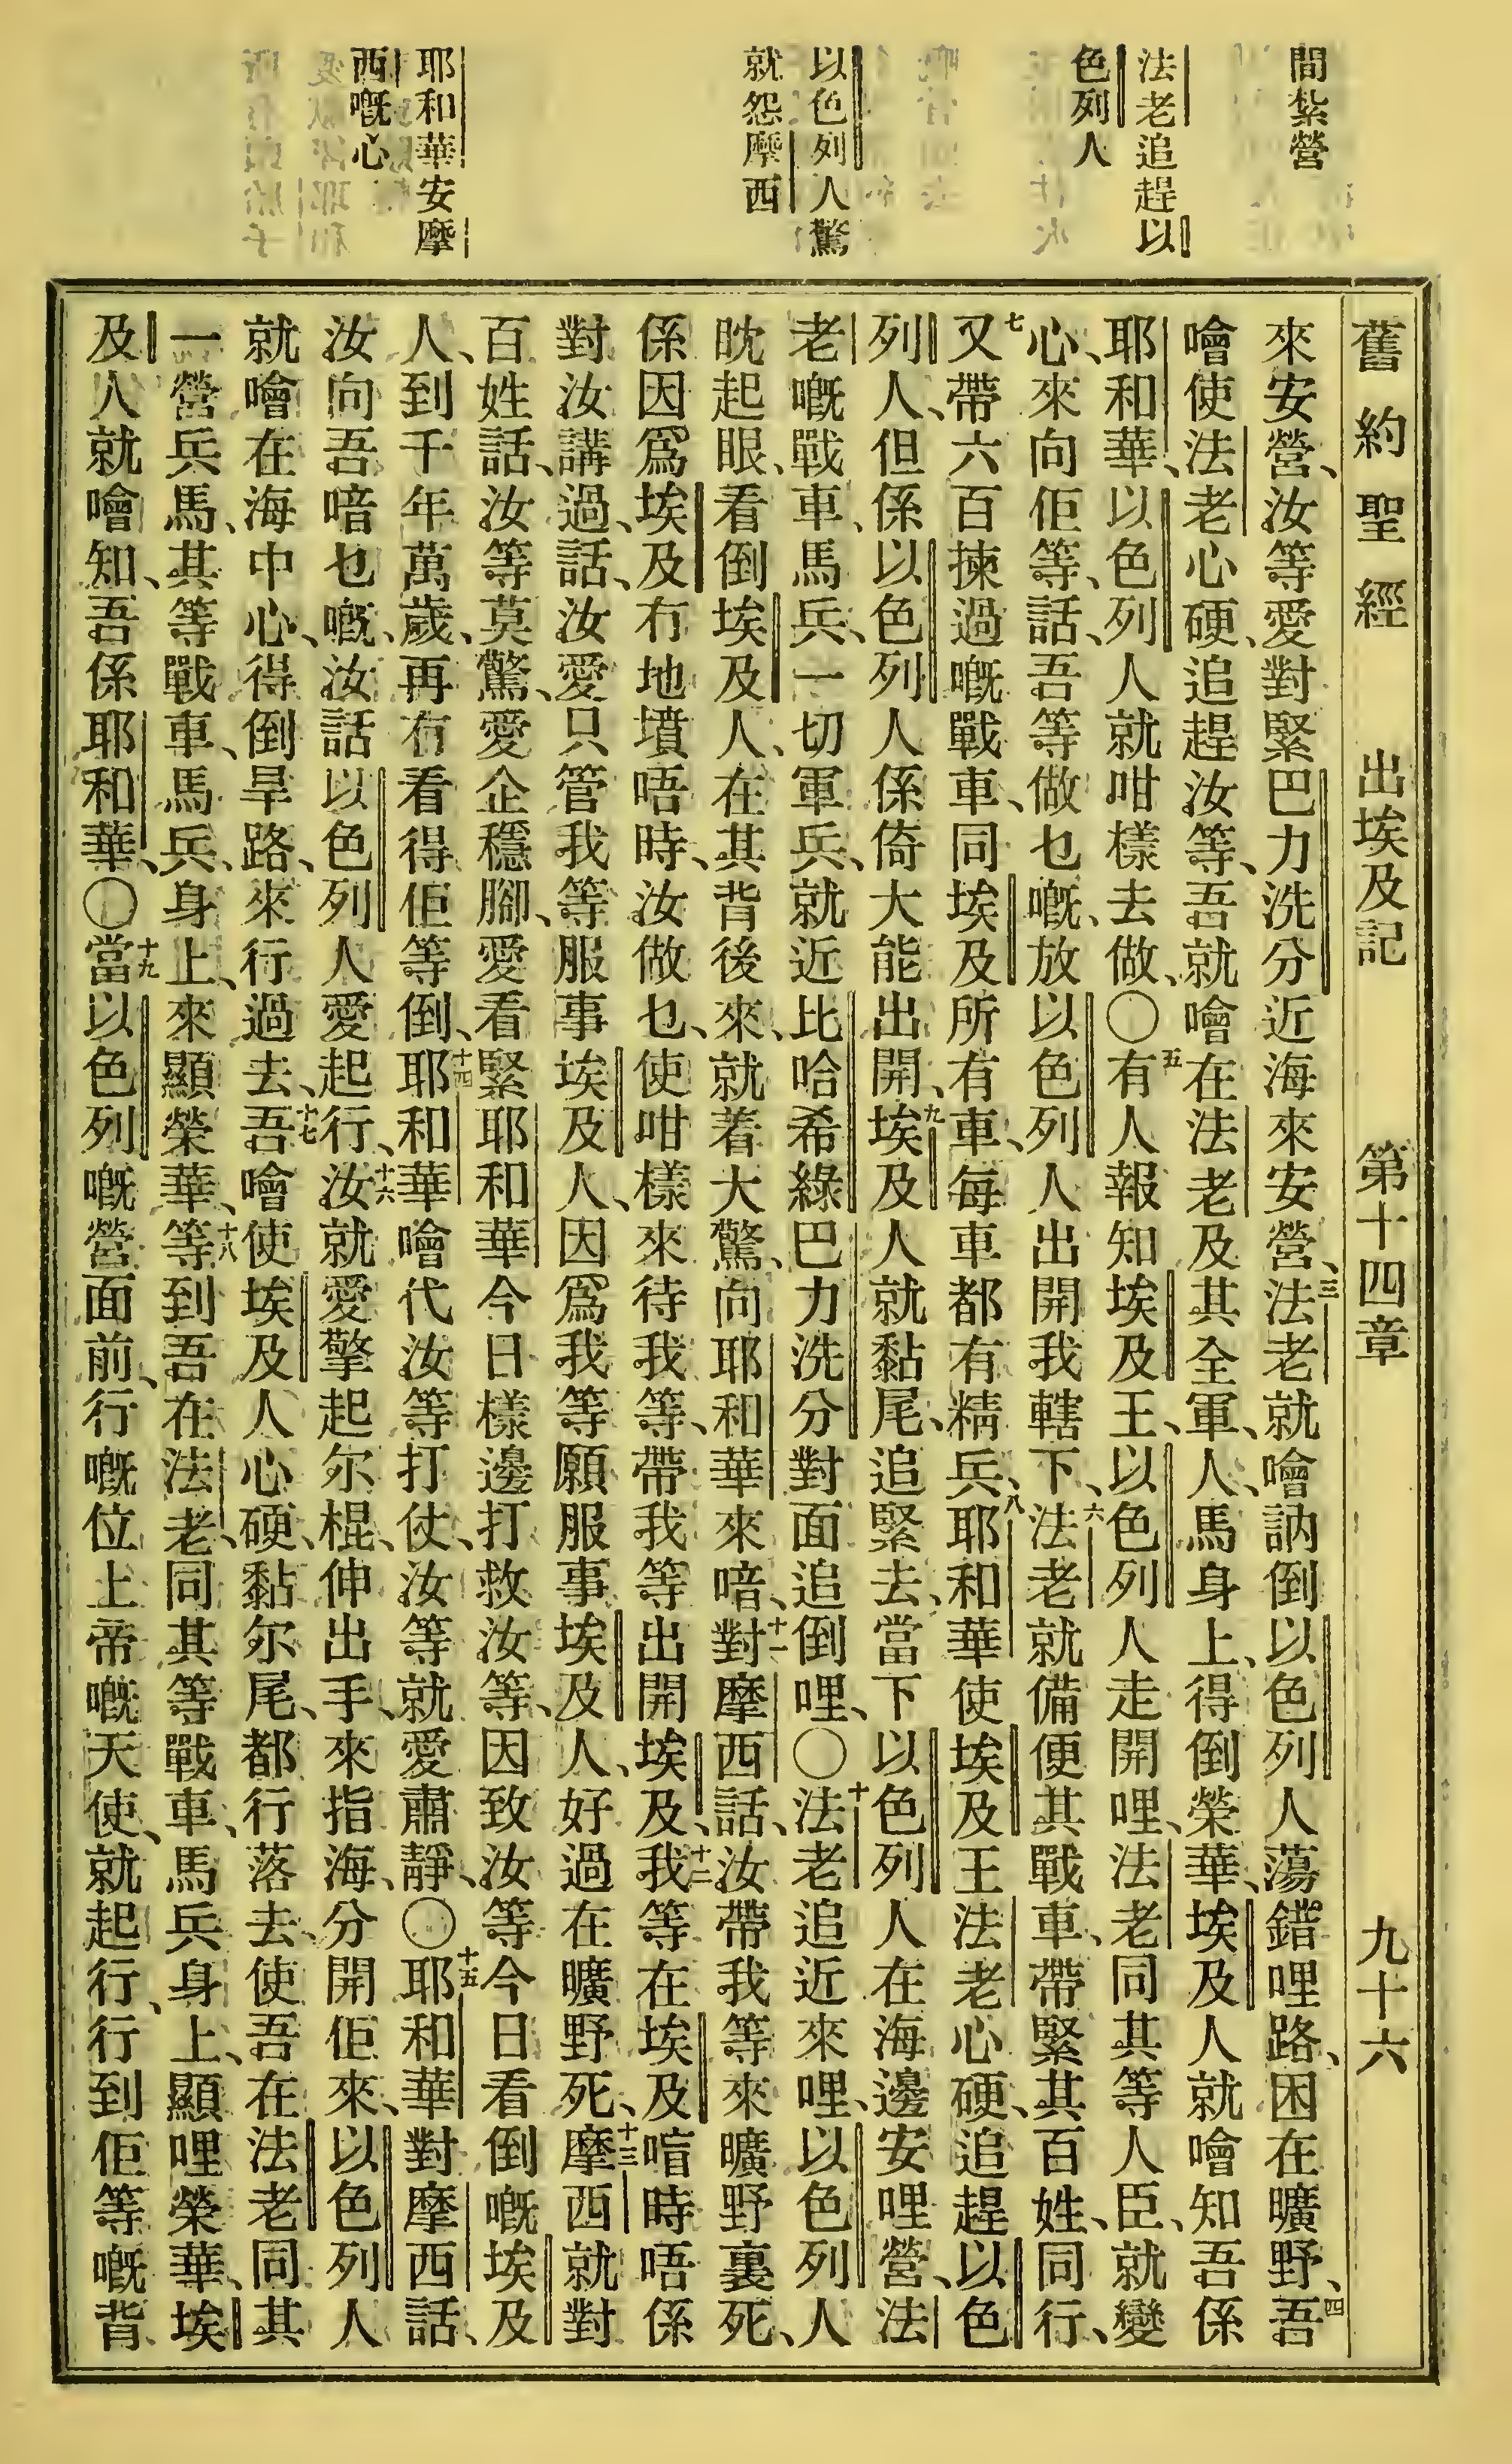 間紮營
法老追趕以
色列人
以色列人驚
就怨摩西
耶和華安摩
西嘅心
舊約聖經 出埃及記 第十四章 九十六
來安營、汝等愛對緊巴力洗分近海來安營、三法老就噲訥倒以色列人蕩錯哩路、困在曠野、四吾
噲使法老心硬、追趕汝等、吾就噲在法老及其全軍、人、馬身上、得倒榮華、埃及人就噲知吾係
耶和華、以色列人就咁樣去做、〇五有人報知埃及王、以色列人走開哩、法老同其等人臣、就變
心、來向佢等、話、吾等做乜嘅、放以色列人出開我轄下、六法老就備便其戰車、帶緊其百姓、同行、
七又帶六百揀過嘅戰車、同埃及所有車、每車都有精兵、八耶和華使埃及王法老心硬、追趕以色
列人、但係以色列人係倚大能出開、九埃及人就黏尾、追緊去、當下以色列人在海邊安哩營、法
老嘅戰車、馬兵、一切軍兵、就近比哈希綠巴力洗分對面追倒哩、〇十法老追近來哩、以色列人
眈起眼、看倒埃及人、在其背後來、就着大驚、向耶和華來喑、十一對摩西話、汝帶我等來曠野裏死、
係因爲埃及冇地墳唔時、汝做乜、使咁樣來待我等、帶我等出開埃及、十二我等在埃及喑時唔係
對汝講過、話、汝愛只管我等服事埃及人、因爲我等願服事埃及人、好過在曠野死、十三摩西就對
百姓話、汝等莫驚、愛企穩腳、愛看緊耶和華今日樣邊打救汝等、因致汝等今日看倒嘅埃及
人、到千年萬歲、再冇看得佢等倒、十四耶和華噲代汝等打仗、汝等就愛肅靜、〇十五耶和華對摩西話、
汝向吾喑乜嘅、汝話以色列人愛起行、十六汝就愛擎起尔棍、伸出手、來指海、分開佢來、以色列人
就噲在海中心、得倒旱路、來行過去、十七吾噲使埃及人心硬、黏尔尾、都行落去、使吾在法老同其
一營兵馬、其等戰車、馬兵、身上、來顯榮華、十八等到吾在法老、同其等戰車、馬兵身上、顯哩榮華、埃
及人就噲知、吾係耶和華、〇十九當以色列嘅營面前、行嘅位上帝嘅天使、就起行、行到佢等嘅背